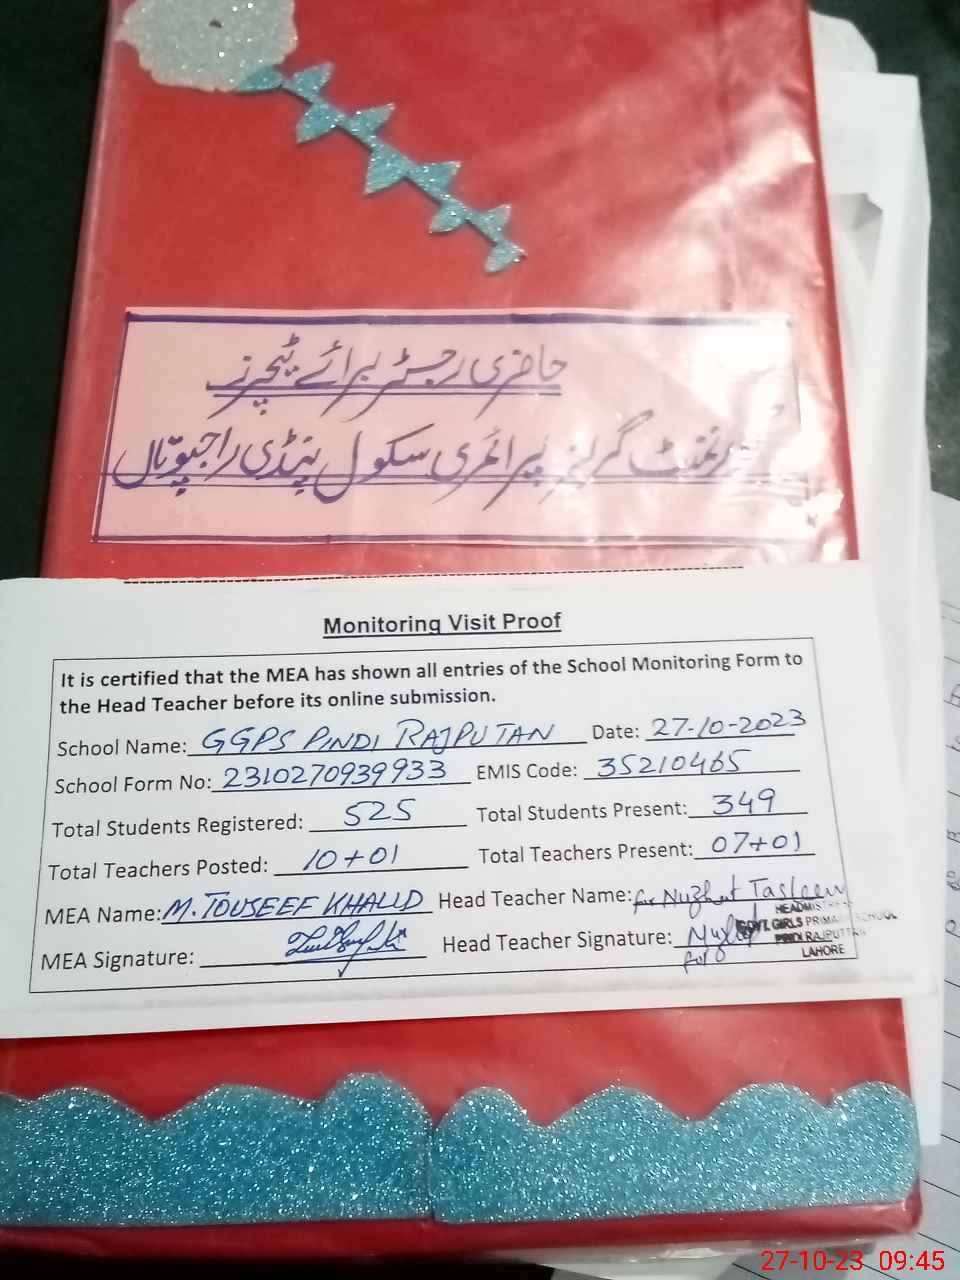 حاضری رجسٹر برائے ٹیچرز
گورنمنٹ گرلز پرائمری سکول پنڈی راجپوتاں
Monitoring Visit Proof
It is certified that the MEA has shown all entries of the School Monitoring Form to
the Head Teacher before its online submission.
School Name: GGPS PINDI RAJPUTAN Date: 27-10-2023
School Form No: 2310270939933 EMIS Code: 35210465
Total Students Registered: 525 Total Students Present: 349
Total Teachers Posted: 10+01 Total Teachers Present: 07+01
MEA Name: M. TOUSEEF KHALID Head Teacher Name: for Nuzhat Tasleem
HEADMISTRESS
GOVT. GIRLS PRIMARY SCHOOL
MEA Signature: Head Teacher Signature: for
PINDI RAJPUTAN
LAHORE
27-10-23 09:45